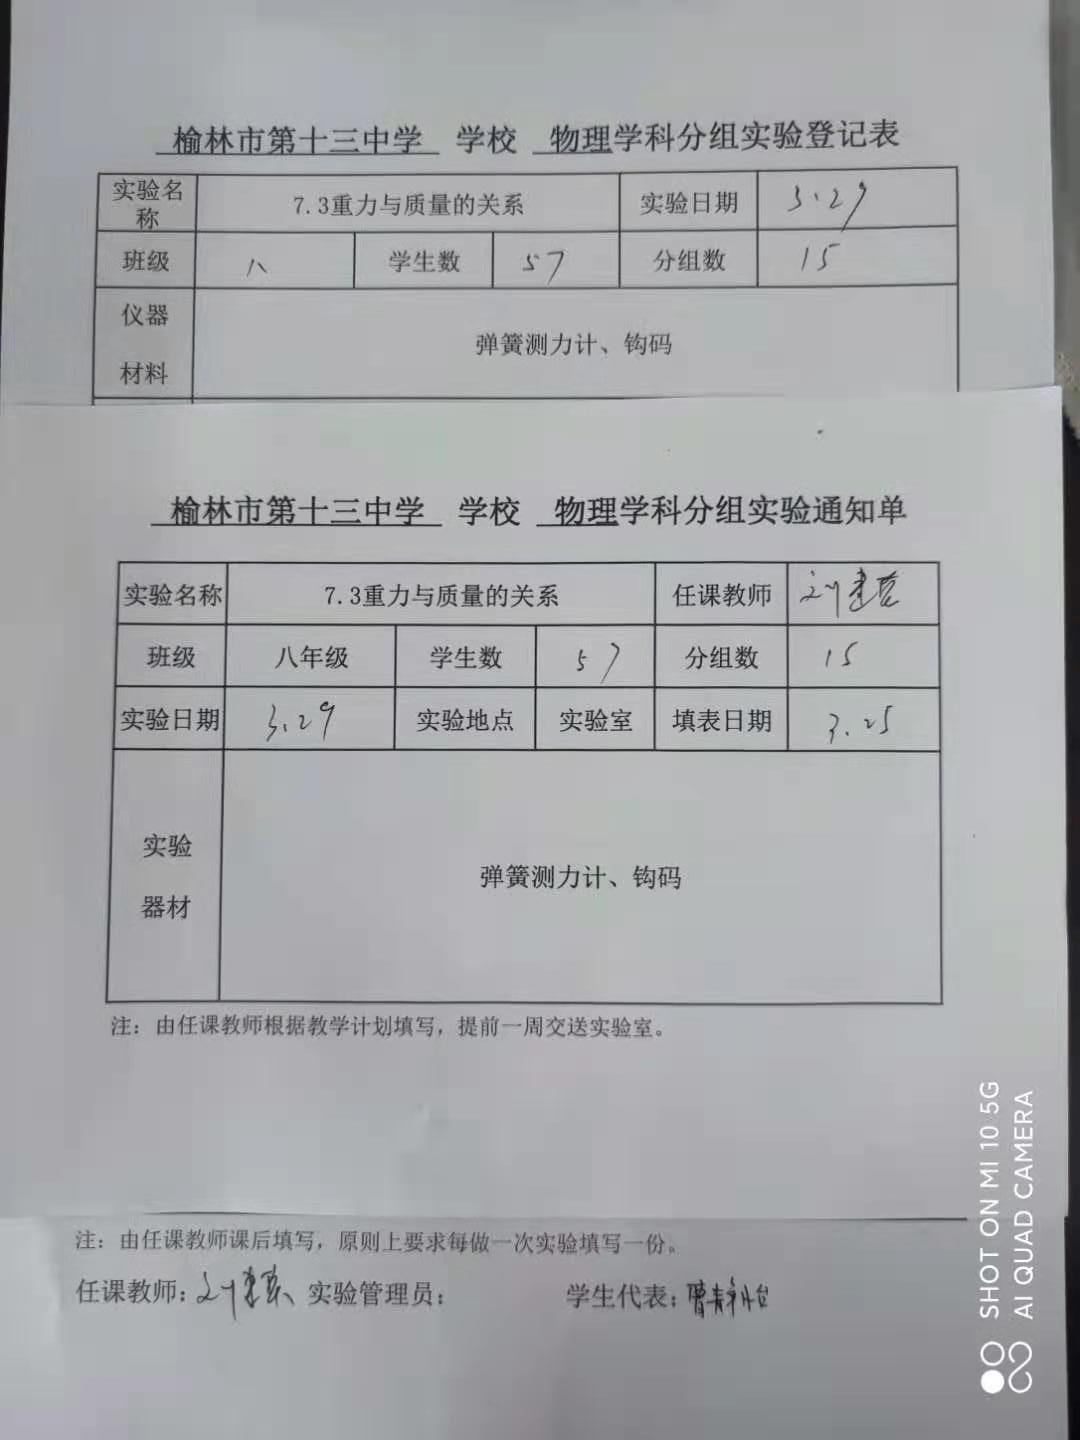 榆林市第十三中学 学校 物理学科分组实验登记表
实验名称 7.3重力与质量的关系 实验日期 3.29
班级 八 学生数 57 分组数 15
仪器材料 弹簧测力计、钩码
榆林市第十三中学 学校 物理学科分组实验通知单
实验名称 7.3重力与质量的关系 任课教师 刘
班级 八年级 学生数 57 分组数 15
实验日期 3.29 实验地点 实验室 填表日期 3.25
实验器材 弹簧测力计、钩码
注：由任课教师根据教学计划填写，提前一周交送实验室。
注：由任课教师课后填写，原则上要求每做一次实验填写一份。
任课教师：刘 实验管理员： 学生代表：曹
SHOT ON MI 10 5G
AI QUAD CAMERA